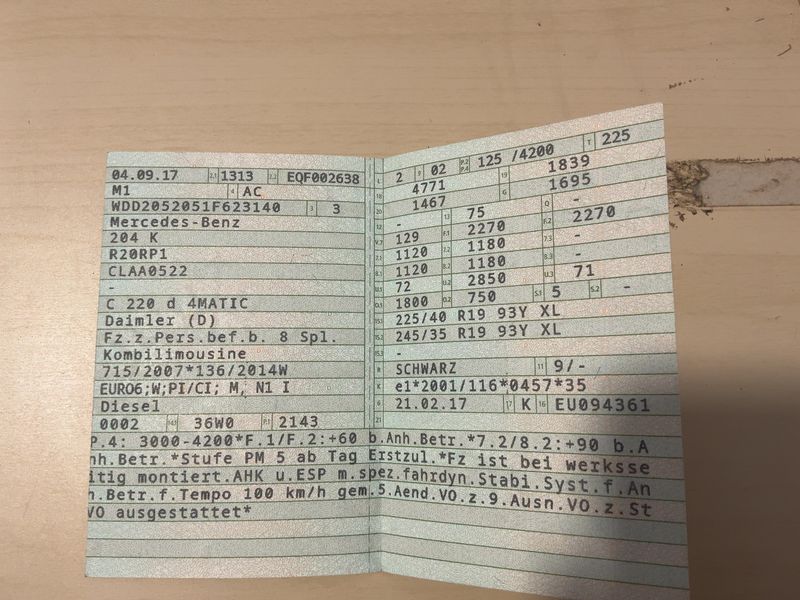 04.09.17 2.1 1313 2.2 EQF002638
M1 4 AC
WDD2052051F623140 3 3
Mercedes-Benz
204 K
R20RP1
CLAA0522
-
C 220 d 4MATIC
Daimler (D)
Fz.z.Pers.bef.b. 8 Spl.
Kombilimousine
715/2007*136/2014W
EURO6;W;PI/CI; M, N1 I
Diesel
0002 14.1 36W0 P.1 2143
L 2 9 02 P.2 P.4 125 /4200 T 225
18 4771 19 1839
20 1467 G 1695
12 - 13 75 Q -
V.7 129 F.1 2270 F.2 2270
7.1 1120 7.2 1180 7.3 -
8.1 1120 8.2 1180 8.3 -
U.1 72 U.2 2850 U.3 71
O.1 1800 O.2 750 S.1 5 S.2 -
15.1 225/40 R19 93Y XL
15.2 245/35 R19 93Y XL
15.3 -
R SCHWARZ 11 9/-
K e1*2001/116*0457*35
6 21.02.17 17 K 16 EU094361
21
P.4: 3000-4200*F.1/F.2:+60 b.Anh.Betr.*7.2/8.2:+90 b.A
nh.Betr.*Stufe PM 5 ab Tag Erstzul.*Fz ist bei werksse
itig montiert.AHK u.ESP m.spez.fahrdyn.Stabi.Syst.f.An
h.Betr.f.Tempo 100 km/h gem.5.Aend.VO.z.9.Ausn.VO.z.St
VO ausgestattet*